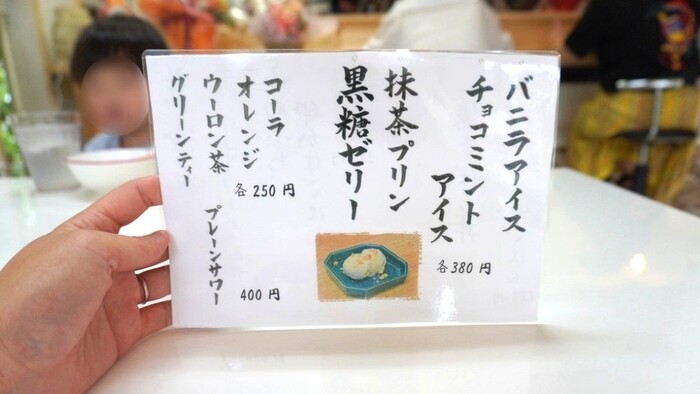 バニラアイス
チョコミント
アイス
各380円
抹茶プリン
黒糖ゼリー
コーラ
オレンジ
ウーロン茶
グリーンティー
各250円
プレーンサワー
400円